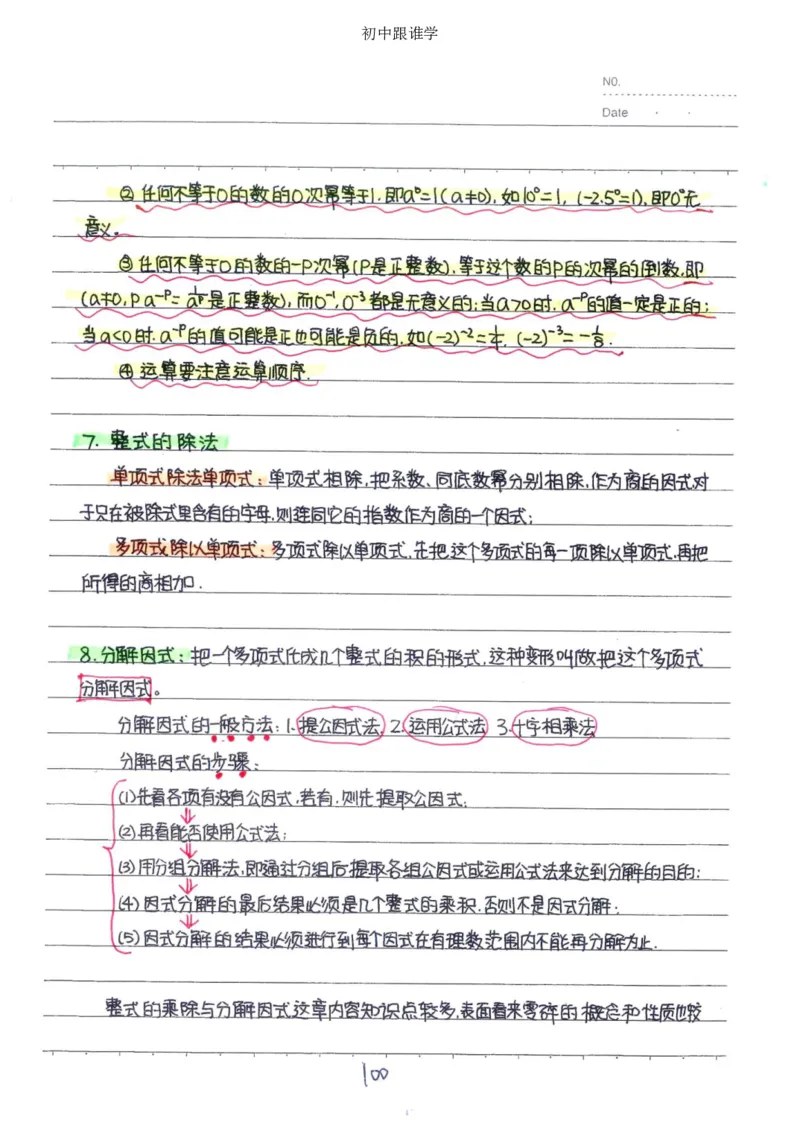 初中跟谁学
NO.
Date
②任何不等于0的数的0次幂等于1.即a⁰=1(a≠0),如10⁰=1,(-2.5⁰=1),即0⁰无
意义。
③任何不等于0的数的-P次幂(P是正整数),等于这个数的P的次幂的倒数,即
(a≠0,P a⁻ᵖ= 1/aᵖ是正整数),而0⁻¹,0⁻³都是无意义的;当a>0时.a⁻ᵖ的值一定是正的;
当a<0时.a⁻ᵖ的值可能是正也可能是负的,如(-2)⁻²=1/4,(-2)⁻³=-1/8.
④运算要注意运算顺序.
7.整式的除法
单项式除法单项式:单项式相除,把系数、同底数幂分别相除,作为商的因式对
于只在被除式里含有的字母,则连同它的指数作为商的一个因式;
多项式除以单项式:多项式除以单项式,先把这个多项式的每一项除以单项式,再把
所得的商相加.
8.分解因式:把一个多项式化成几个整式的积的形式,这种变形叫做把这个多项式
分解因式。
分解因式的一般方法:1.提公因式法,2.运用公式法 3.十字相乘法
分解因式的步骤:
(1)先看各项有没有公因式,若有,则先提取公因式;
(2)再看能否使用公式法;
(3)用分组分解法,即通过分组后提取各组公因式或运用公式法来达到分解的目的;
(4)因式分解的最后结果必须是几个整式的乘积,否则不是因式分解;
(5)因式分解的结果必须进行到每个因式在有理数范围内不能再分解为止.
整式的乘除与分解因式这章内容知识点较多,表面看来零碎的概念和性质也较
100